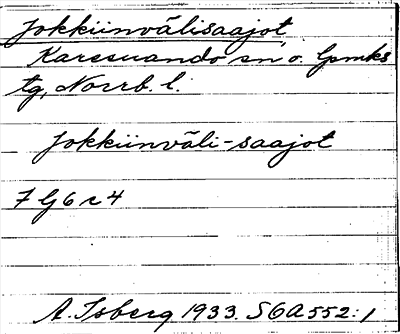 Jokkiinvälisaajot,
Karesuando sn o. lpmks
tg, Norrb. l.
Jokkiinväli-saajot
7 G 6 c 4
A. Isberg 1933. S 6A 552:1